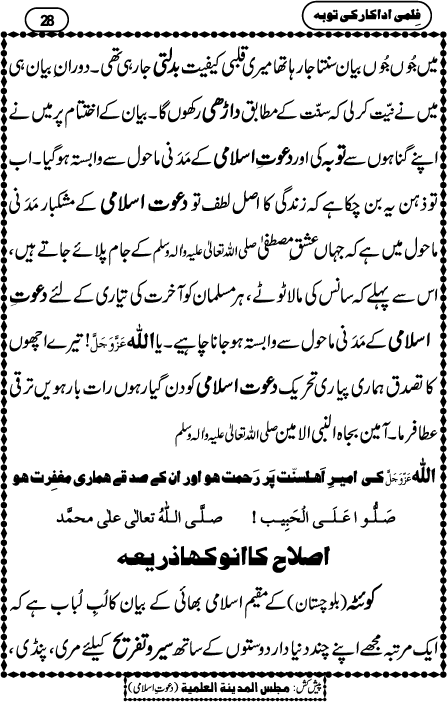 فِلمی اداکار کی توبہ
28
میں جُوں جُوں بیان سنتا جا رہا تھا میری قلبی کیفیت بدلتی جا رہی تھی۔ دورانِ بیان ہی
میں نے نیّت کر لی کہ سنّت کے مطابق داڑھی رکھوں گا۔ بیان کے اختتام پر میں نے
اپنے گناہوں سے توبہ کی اور دعوتِ اسلامی کے مَدَنی ماحول سے وابستہ ہو گیا۔ اب
تو ذہن یہ بن چکا ہے کہ زندگی کا اصل لطف تو دعوتِ اسلامی کے مشکبار مَدَنی
ماحول میں ہے کہ جہاں عشقِ مصطفٰی صلی اللہ تعالیٰ علیہ والہ وسلم کے جام پلائے جاتے ہیں،
اس سے پہلے کہ سانس کی مالا ٹوٹے، ہر مسلمان کو آخرت کی تیاری کے لئے دعوتِ
اسلامی کے مَدَنی ماحول سے وابستہ ہو جانا چاہیے۔ یا اللہ عَزَّوَجَلَّ! تیرے اچھوں
کا تصدق ہماری پیاری تحریک دعوتِ اسلامی کو دن گیارہوں رات بارہویں ترقی
عطا فرما۔ آمین بجاہ النبی الامین صلی اللہ تعالیٰ علیہ والہ وسلم
اللہ عَزَّوَجَلَّ کی امیرِ اَھلسنّت پَر رَحمت ھو اور ان کے صدقے ھماری مغفِرت ھو
صَلُّوا عَلَی الْحَبِیب ! صلَّی اللہُ تعالٰی علٰی محمَّد
اصلاح کا انوکھا ذریعہ
کوئٹہ (بلوچستان) کے مقیم اسلامی بھائی کے بیان کا لُبِّ لُباب ہے کہ
ایک مرتبہ مجھے اپنے چند دنیا دار دوستوں کے ساتھ سیر و تفریح کیلئے مری، پنڈی،
پیش کش: مجلس المدینۃ العلمیۃ (دعوتِ اسلامی)